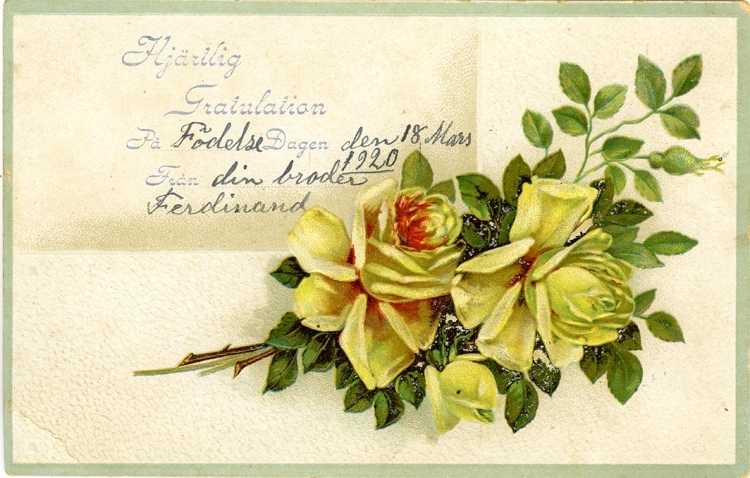 Hjärtlig
Gratulation
På Födelse Dagen den 18 Mars
1920
Från din broder
Ferdinand